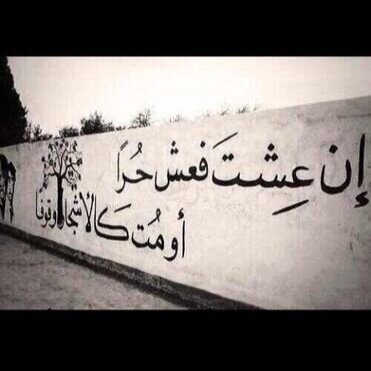 إن عِشتَ فعش حُرا
أو مُت كَالأشجار وقوفا